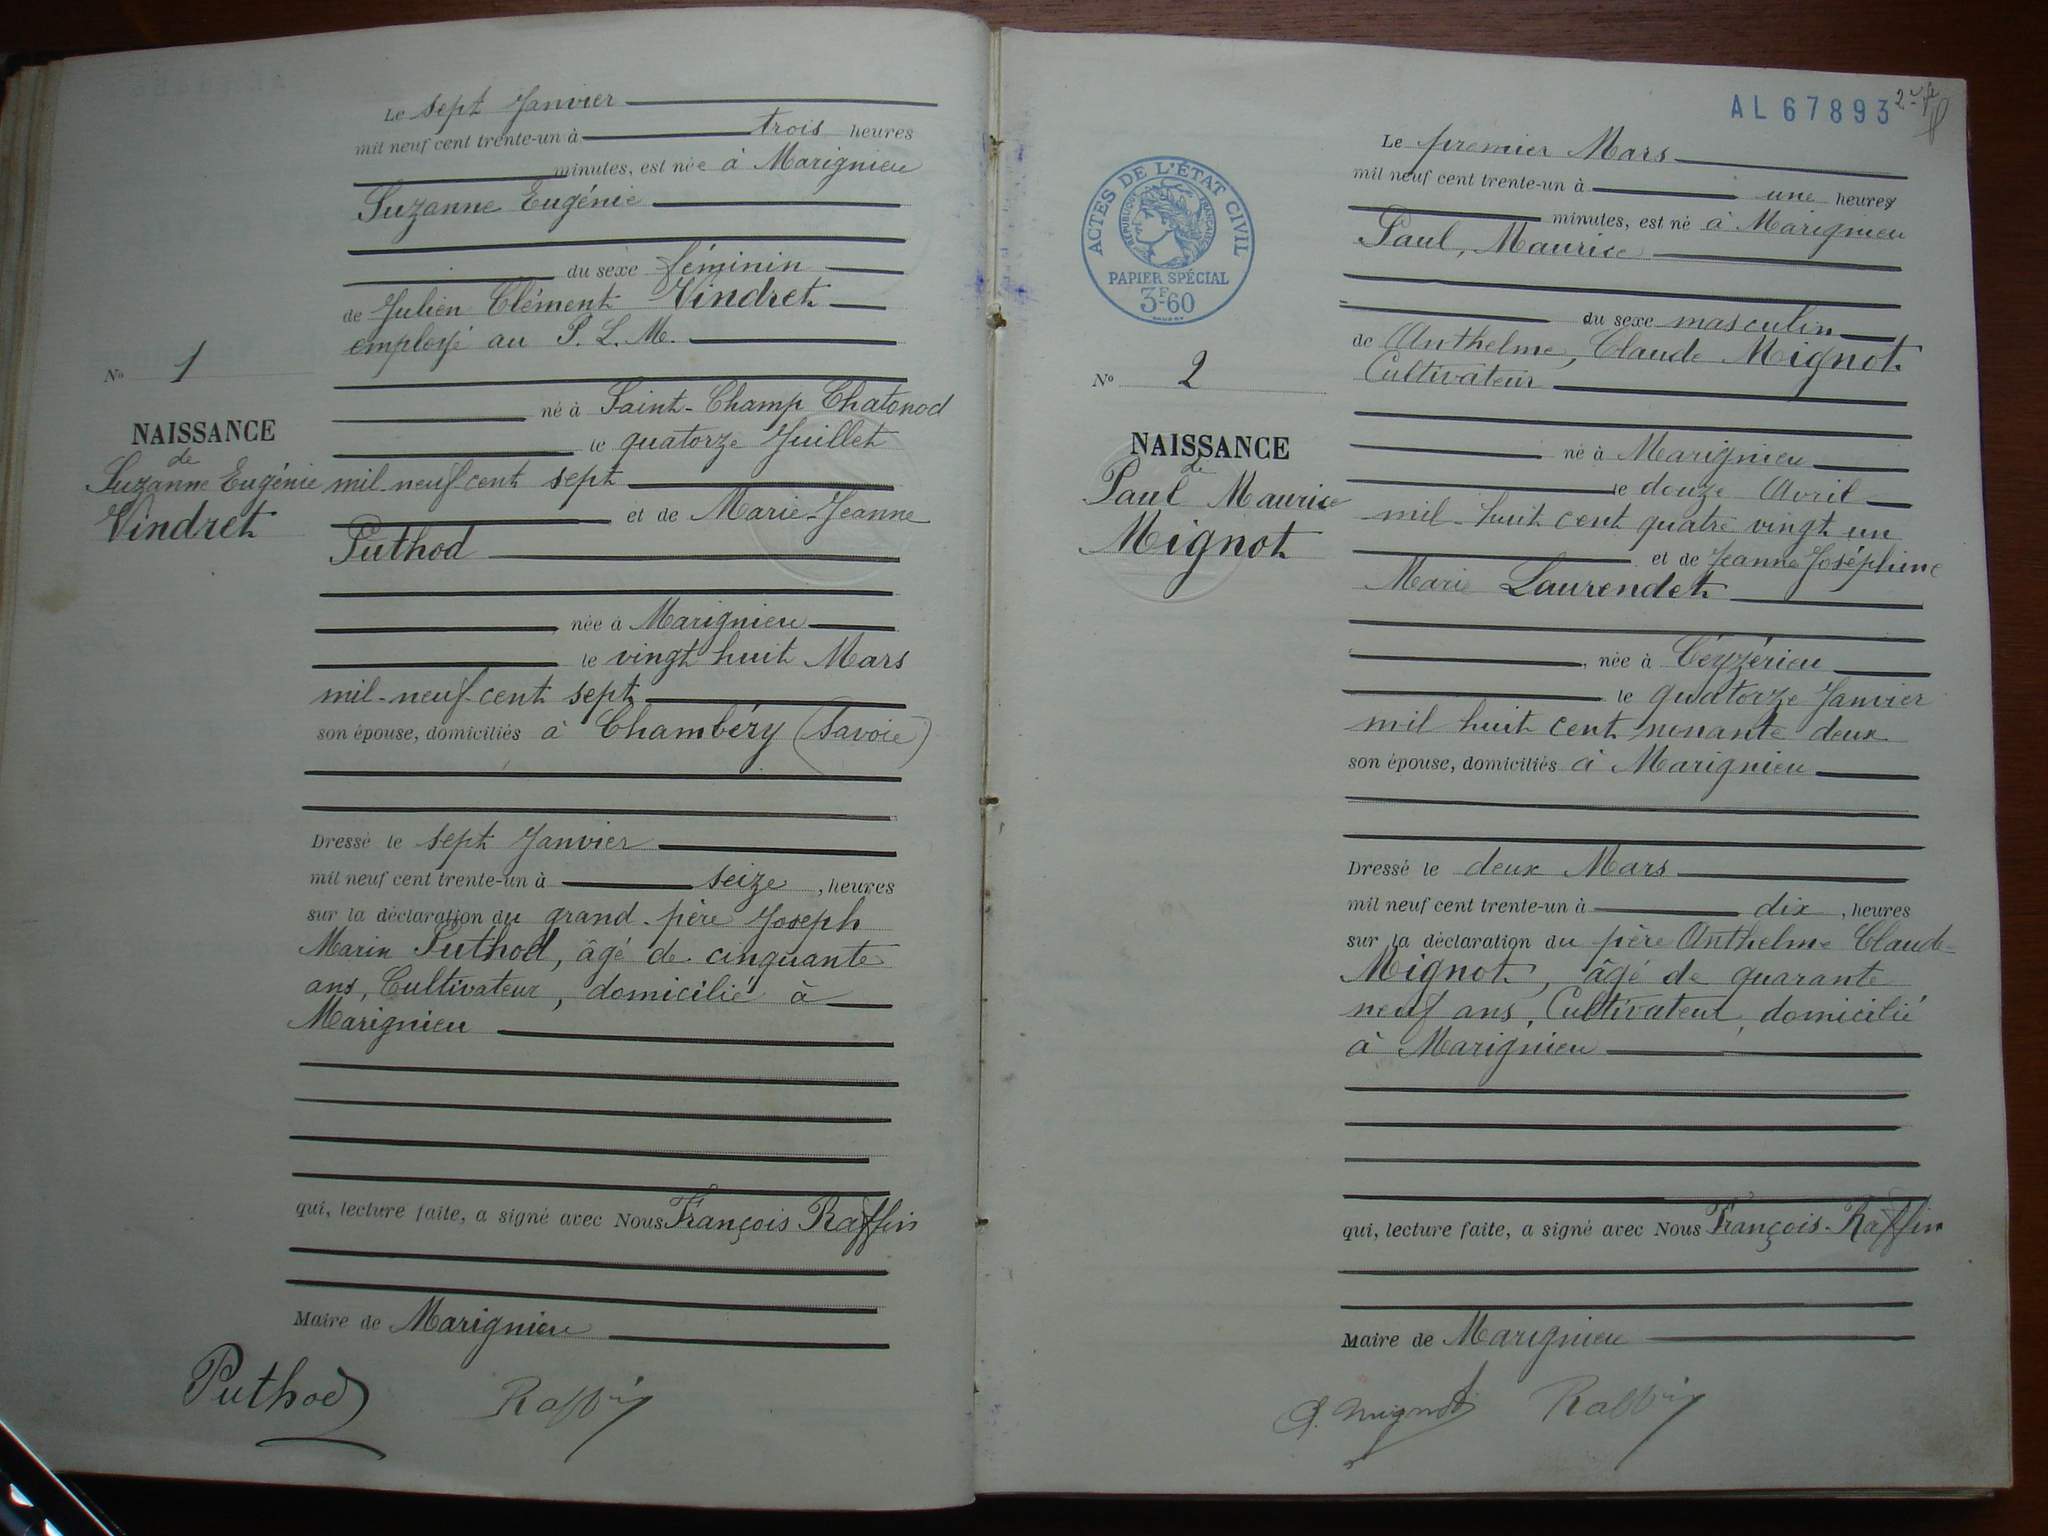 Le sept Janvier
mil neuf cent trente-un à trois heures
minutes, est née à Marignieu
Suzanne Eugénie
du sexe féminin
de Julien Clément Vindret
employé au P. L. M.
né à Saint-Champ Chatonod
le quatorze Juillet
mil neuf cent sept
et de Marie-Jeanne
Puthod
née à Marignieu
le vingt huit Mars
mil-neuf-cent sept
son épouse, domiciliés à Chambéry (Savoie)
Dressé le sept Janvier
mil neuf cent trente-un à seize, heures
sur la déclaration du grand-père Joseph
Marin Puthod, âgé de cinquante
ans, Cultivateur, domicilié à
Marignieu
qui, lecture faite, a signé avec Nous François Raffin
Maire de Marignieu
Puthod Raffin
No 1
NAISSANCE
de
Suzanne Eugénie
Vindret
AL 67893
ACTES DE L'ÉTAT CIVIL
RÉPUBLIQUE FRANÇAISE
PAPIER SPÉCIAL
3F60
No 2
NAISSANCE
de
Paul Maurice
Mignot
Le premier Mars
mil neuf cent trente-un à une heures
minutes, est né à Marignieu
Paul, Maurice
du sexe masculin
de Anthelme, Claude Mignot
Cultivateur
né à Marignieu
le douze Avril
mil-huit cent quatre vingt un
et de Jeanne Joséphine
Marie Laurendet
née à Ceyzérieu
le quatorze Janvier
mil huit cent nonante deux
son épouse, domiciliés à Marignieu
Dressé le deux Mars
mil neuf cent trente-un à dix, heures
sur la déclaration du père Anthelme Claude
Mignot, âgé de quarante
neuf ans, Cultivateur, domicilié
à Marignieu
qui, lecture faite, a signé avec Nous François Raffin
Maire de Marignieu
A. Mignot Raffin